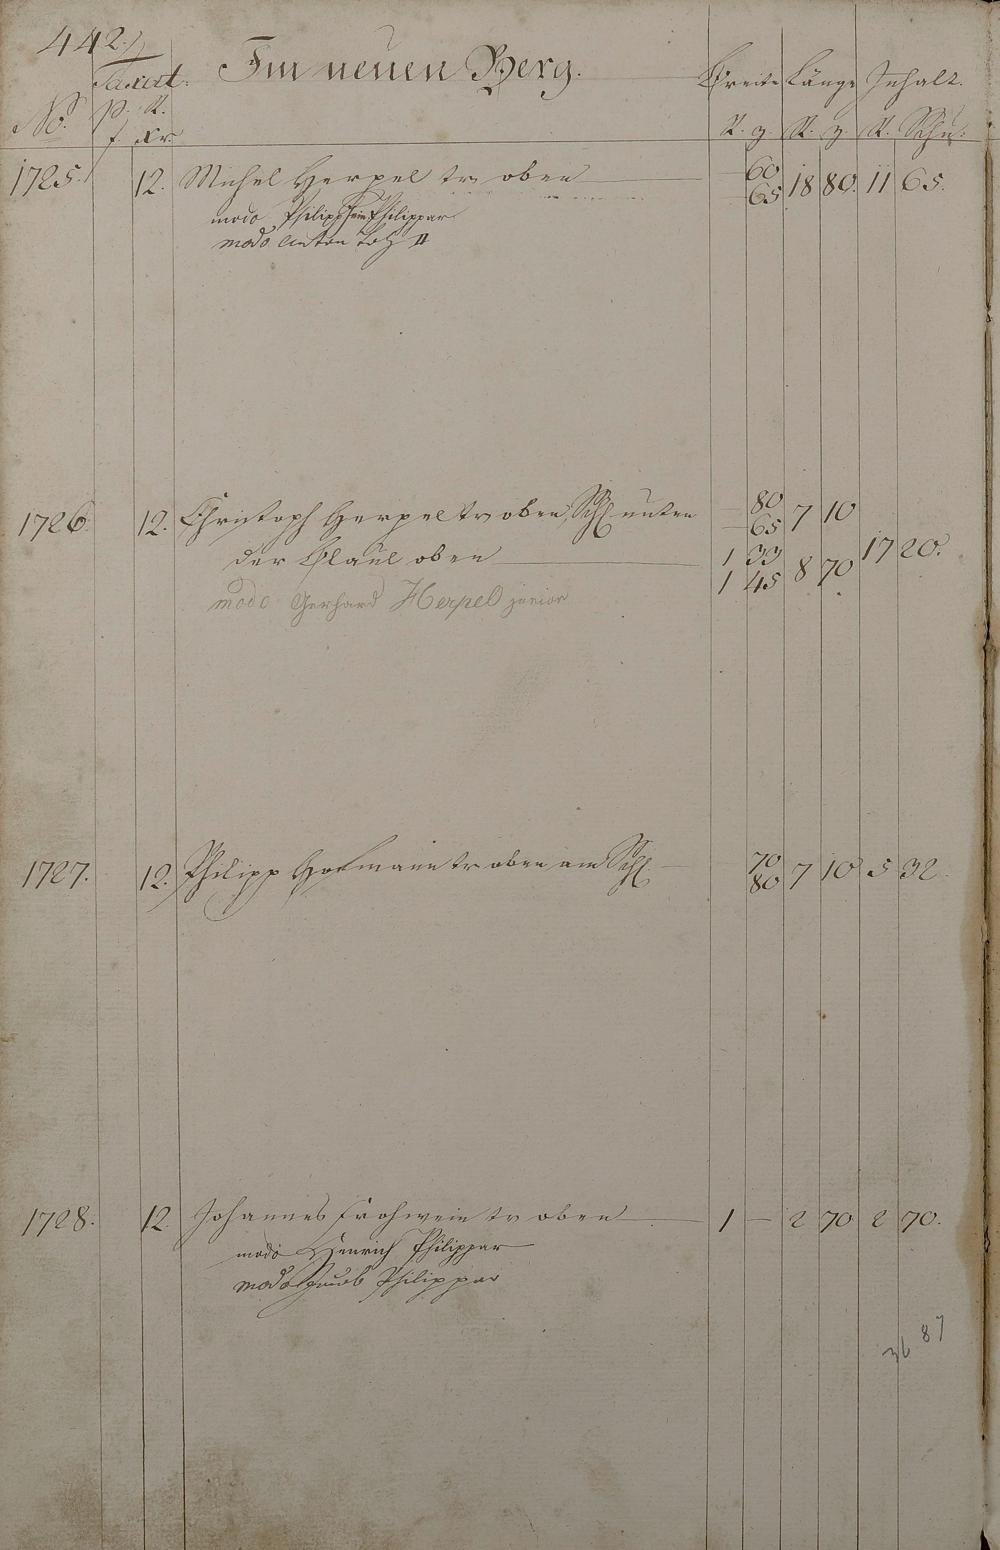 442.
Taxat. Im neuen Berg. Breite Länge Inhalt.
No. p. R.
f. Xr. R. z. R. z. R. Schu:
1725. 12. Michel Herpel tr oben 60 65 18 80. 11 65.
modo Philipp Philippar
modo Anton II
1726 12. Christoph Herpel tr oben Schl unten 80 65 7 10
der oben 1 33 1 45 8 70 17 20.
modo Gerhard Herpel junior
1727. 12. Philipp Hofmann tr oben am Schl 70 80 7 10 5 32
1728. 12. Johannes Frohwein tr oben 1 — 2 70 2 70.
modo Henrich Philippar
modo Jacob Philippar
36 87